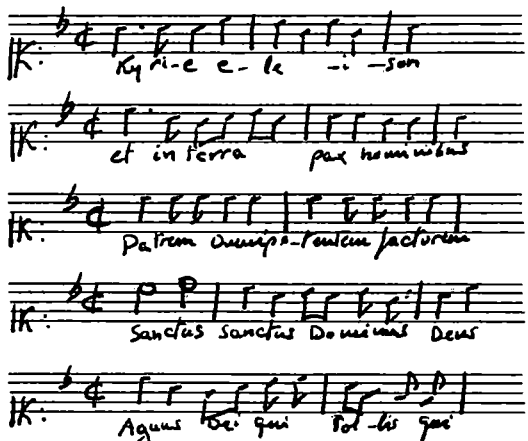 Kyri-e e-le -i -son
et in terra pax hominibus
Patrem omnipo-tentem factorem
Sanctus Sanctus Dominus Deus
Agnus Dei qui tol-lis qui